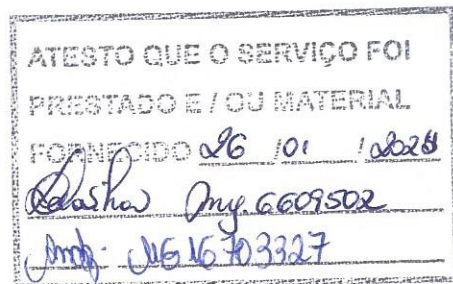 ATESTO QUE O SERVIÇO FOI
PRESTADO E / OU MATERIAL
FORNECIDO 26 / 01 /
6609502
MG 16703327